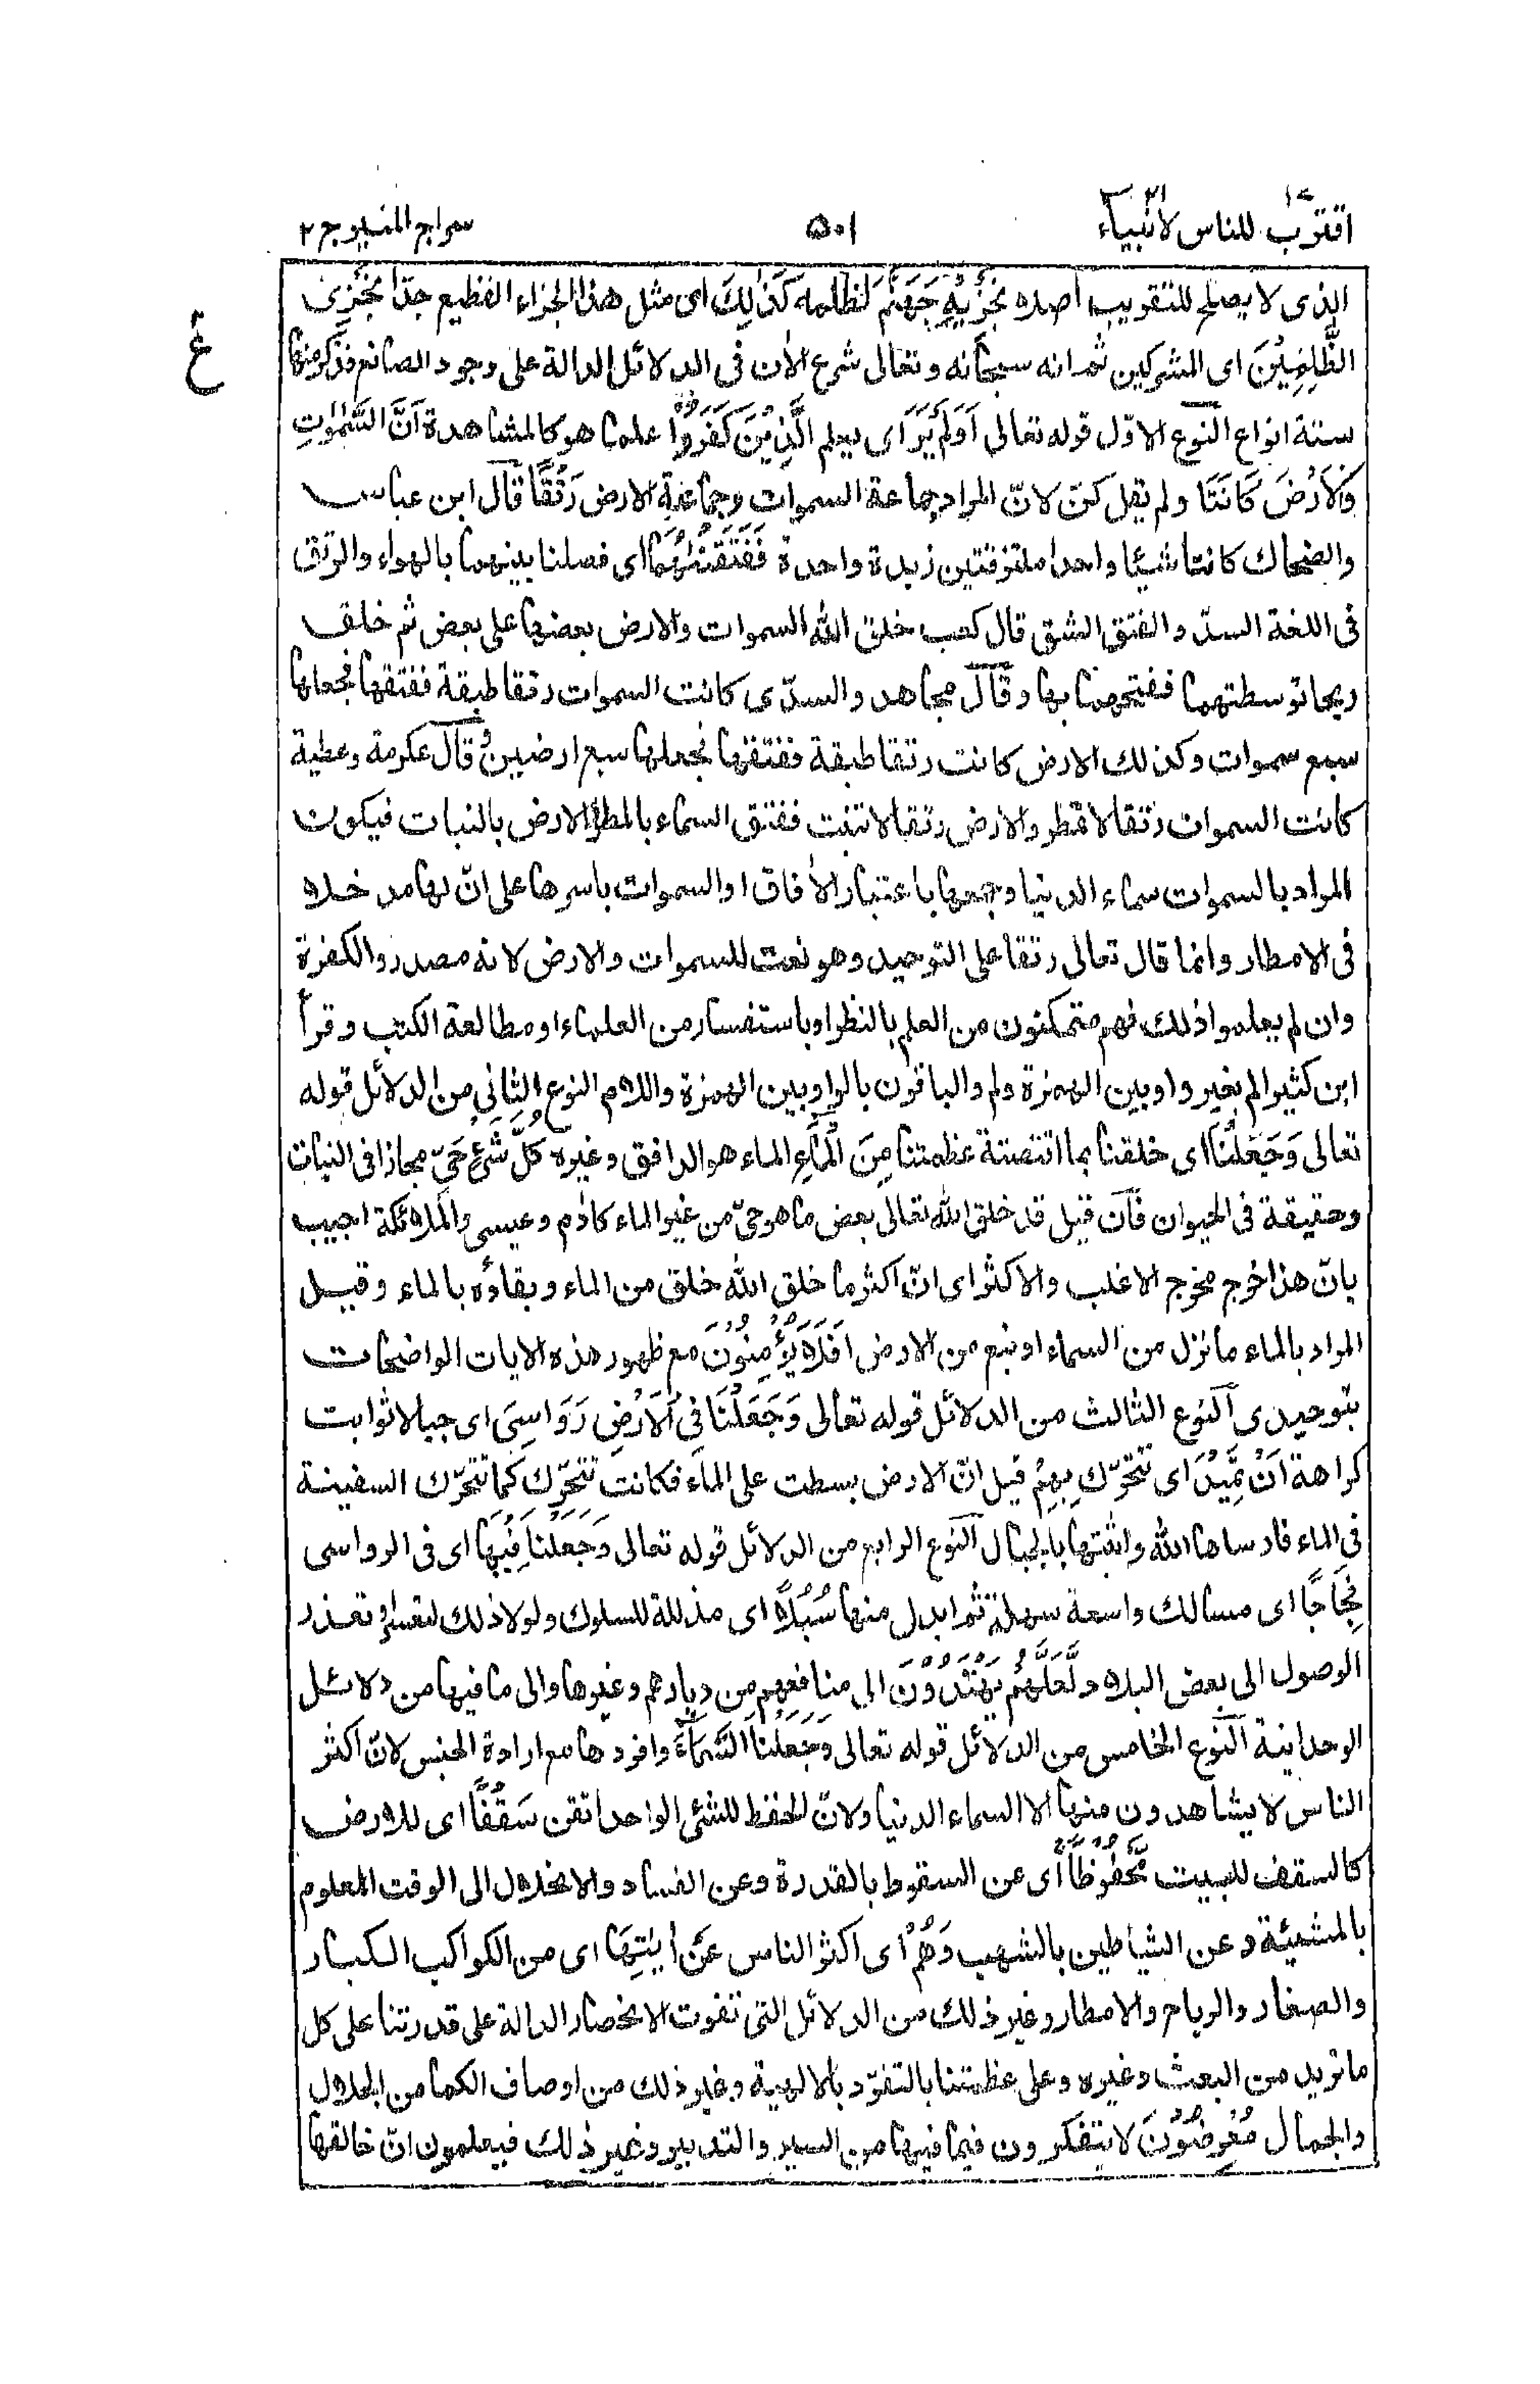 اقترب للناس ١٧ الانبياء ٢١
٥٠١
سراج المنير ج ٢
ع
الذى لا يصلح للتقريب اصلا نَجْزِيْهِ جَهَنَّمَ لظلمه كَذٰلِكَ اى مثل هذا الجزاء الفظيع جدّا نَجْزِى
الظّٰلِمِيْنَ اى المشركين ثم انه سبحانه وتعالى شرع الاٰن فى الدلائل الدالة على وجود الصانع فذكر منها
ستة انواع النوع الاوّل قوله تعالى اَوَلَمْ يَرَ اى يعلم الَّذِيْنَ كَفَرُوْٓا علما هو كالمشاهدة اَنَّ السَّمٰوٰتِ
وَالْاَرْضَ كَانَتَا ولم يقل كنّ لانّ المراد جماعة السموات وجماعة الارض رَتْقًا قال ابن عباس
والضحاك كانتا شيئا واحدا ملتزقتين زبدة واحدة فَفَتَقْنٰهُمَا اى فصلنا بينهما بالهواء والرتق
فى اللغة السدّ والفتق الشق قال كعب خلق الله السموات والارض بعضها على بعض ثم خلق
ريحا توسطتهما ففتحهما بها وقال مجاهد والسدّى كانت السموات رتقا طبقة ففتقها فجعلها
سبع سموات وكذلك الارض كانت رتقا طبقة ففتقها فجعلها سبع ارضين وقال عكرمة وعطية
كانت السموات رتقا لا تمطر والارض رتقا لا تنبت ففتق السماء بالمطر والارض بالنبات فيكون
المراد بالسموات سماء الدنيا وجمعها باعتبار الاٰفاق او السموات باسرها على انّ لها مدخلا
فى الامطار وانما قال تعالى رتقا على التوحيد وهو نعت للسموات والارض لانه مصدر والكفرة
وان لم يعلموا ذلك فهم متمكنون من العلم بالنظر او باستفسار من العلماء او مطالعة الكتب وقرأ
ابن كثير الم بغير واو بين الهمزة ولم والباقون بالواو بين الهمزة واللام النوع الثانى من الدلائل قوله
تعالى وَجَعَلْنَا اى خلقنا بما اقتضته عظمتنا مِنَ الْمَآءِ الماء هو الدافق وغيره كُلَّ شَيْءٍ حَيٍّ مجازا فى النبات
وحقيقة فى الحيوان فان قيل قد خلق الله تعالى بعض ما هو حىّ من غير الماء كاٰدم وعيسى والملائكة اجيب
بانّ هذا خرج مخرج الاغلب والاكثر اى انّ اكثر ما خلق الله خلق من الماء وبقاؤه بالماء وقيل
المراد بالماء ما نزل من السماء او نبع من الارض اَفَلَا يُؤْمِنُوْنَ مع ظهور هذه الايات الواضحات
بتوحيدى النوع الثالث من الدلائل قوله تعالى وَجَعَلْنَا فِى الْاَرْضِ رَوَاسِىَ اى جبالا ثوابت
كراهة اَنْ تَمِيْدَ اى تتحرّك بِهِمْ قيل انّ الارض بسطت على الماء فكانت تتحرّك كما تتحرّك السفينة
فى الماء فارساها الله واثبتها بالجبال النوع الرابع من الدلائل قوله تعالى وَجَعَلْنَا فِيْهَا اى فى الرواسى
فِجَاجًا اى مسالك واسعة سهلة ثم ابدل منها سُبُلًا اى مذللة للسلوك ولولا ذلك لتعسر او تعذر
الوصول الى بعض البلاد لَّعَلَّهُمْ يَهْتَدُوْنَ الى منافعهم من ديارهم وغيرها والى ما فيها من دلائل
الوحدانية النوع الخامس من الدلائل قوله تعالى وَجَعَلْنَا السَّمَآءَ وافردها مع ارادة الجنس لانّ اكثر
الناس لا يشاهدون منها الا السماء الدنيا ولانّ الحفظ للشئ الواحد اتقن سَقْفًا اى للارض
كالسقف للبيت مَّحْفُوْظًا اى عن السقوط بالقدرة وعن الفساد والانحلال الى الوقت المعلوم
بالمشيئة وعن الشياطين بالشهب وَهُمْ اى اكثر الناس عَنْ اٰيٰتِهَا اى من الكواكب الكبار
والصغار والرياح والامطار وغير ذلك من الدلائل التى تفوت الانحصار الدالة على قدرتنا على كل
ما نريد من البعث وغيره وعلى عظمتنا بالتفرّد بالالهية وغير ذلك من اوصاف الكمال من الجلال
والجمال مُعْرِضُوْنَ لا يتفكرون فيما فيها من السير والتدبير وغير ذلك فيعلمون انّ خالقها